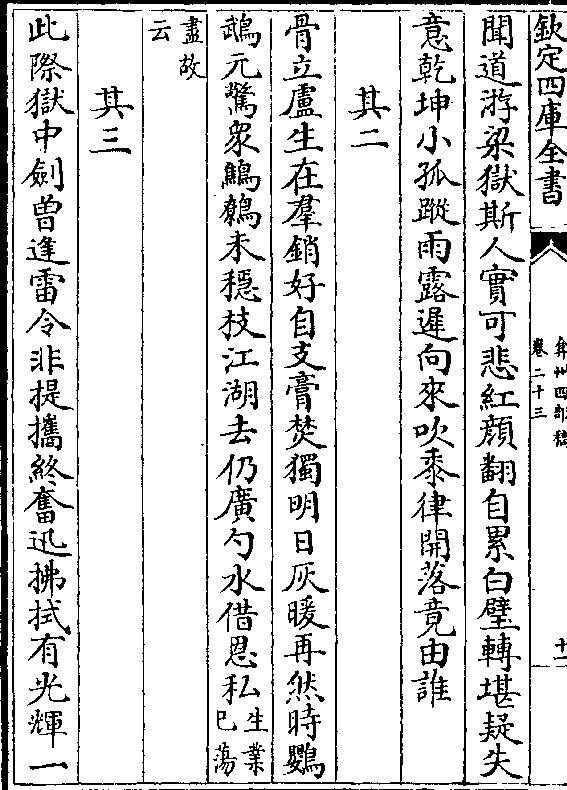 欽定四庫全書
弇州四部稿
卷二十三
十一
聞道游梁獄斯人實可悲紅顔翻自累白璧轉堪疑失
意乾坤小孤蹤雨露遲向來吹黍律開落竟由誰
其二
骨立盧生在羣銷好自支膏焚獨明日灰暖再然時鸚
鵡元驚衆鷦鷯未穩枝江湖去仍廣勺水借恩私生業已蕩
盡故云
其三
此際獄中劍曽逢雷令非提攜終奮迅拂拭有光輝一